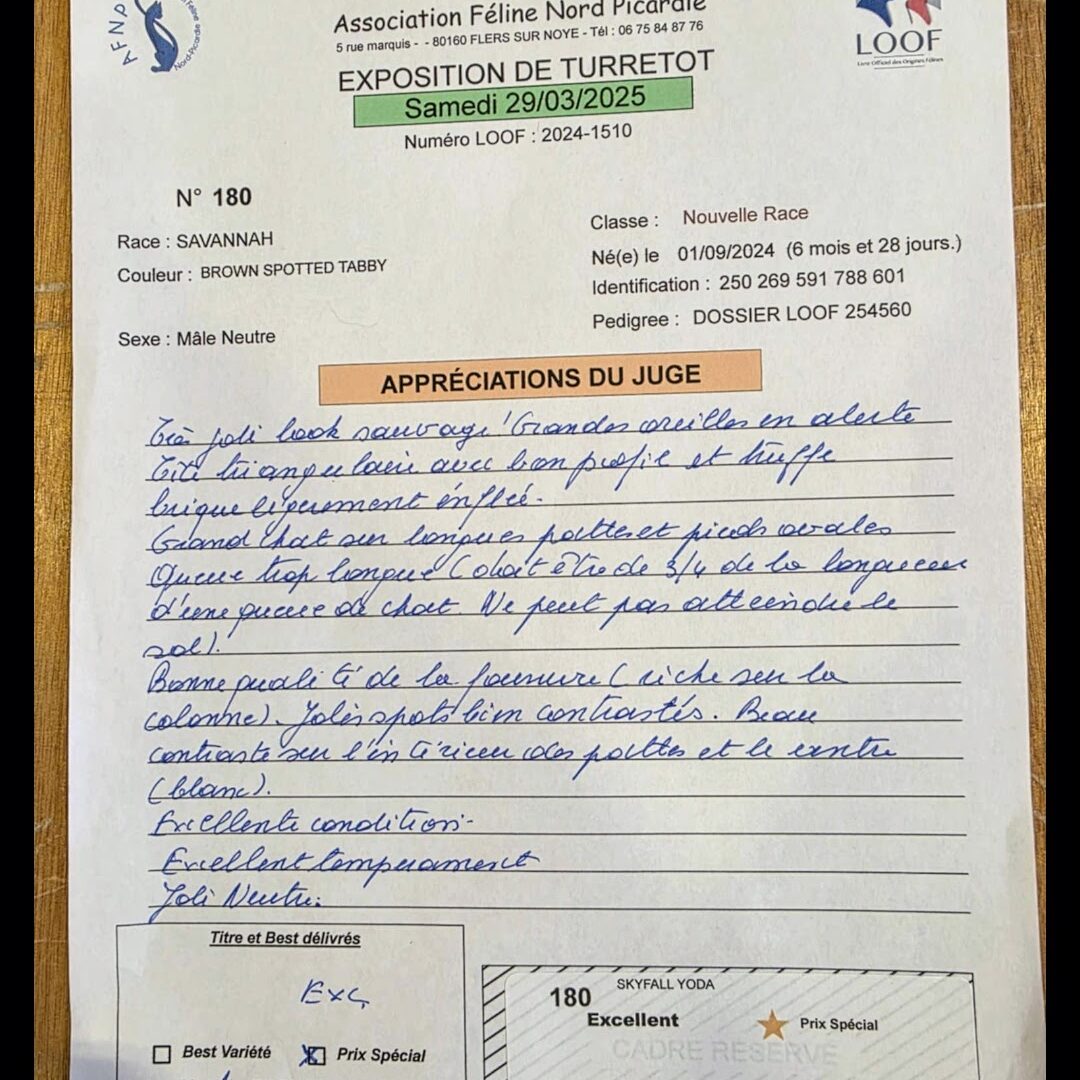 AFNP
Nord-Picardie
Association Féline Nord Picardie
5 rue marquis - - 80160 FLERS SUR NOYE - Tél : 06 75 84 87 76
LOOF
Livre Officiel des Origines Félines
EXPOSITION DE TURRETOT
Samedi 29/03/2025
Numéro LOOF : 2024-1510
N° 180
Race : SAVANNAH
Couleur : BROWN SPOTTED TABBY
Sexe : Mâle Neutre
Classe : Nouvelle Race
Né(e) le 01/09/2024 (6 mois et 28 jours.)
Identification : 250 269 591 788 601
Pedigree : DOSSIER LOOF 254560
APPRÉCIATIONS DU JUGE
Très joli look sauvage ! Grandes oreilles en alerte
Tête triangulaire avec bon profil et truffe
brique légerement enflée.
Grand chat sur longues pattes et pieds ovales
Queue trop longue (doit être de 3/4 de la longueur
d'une queue de chat. Ne peut pas atteindre le
sol).
Bonne qualité de la fourrure (riche sur la
colonne). Jolis spots bien contrastés. Beau
contraste sur l'intérieur des pattes et le ventre
(blanc).
Excellente condition.
Excellent temperament
Joli Neutre.
Titre et Best délivrés
Exc
Best Variété
Prix Spécial
180
SKYFALL YODA
Excellent
Prix Spécial
CADRE RESERVE